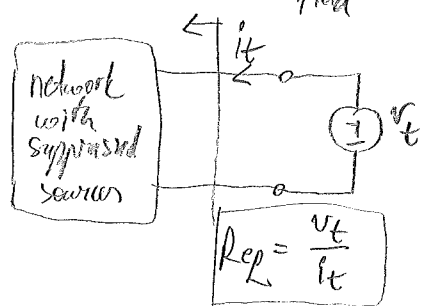 field
it
network
with
suppressed
sources
+
-
vt
Req = vt / it